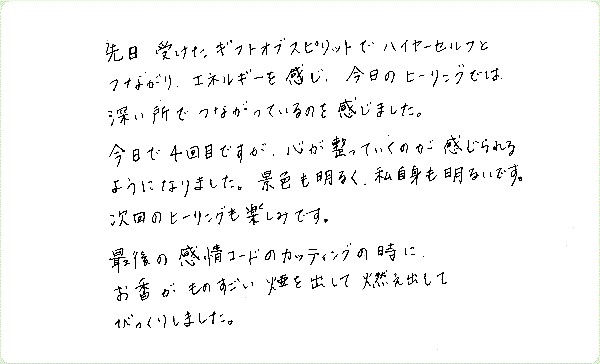 先日 受けた、ギフトオブスピリットで ハイヤーセルフと
つながり、エネルギーを 感じ、今日の ヒーリングでは、
深い所で つながっているのを 感じました。
今日で 4回目ですが、心が 整っていくのが 感じられる
ようになりました。景色も明るく、私自身も 明るいです。
次回の ヒーリングも 楽しみです。
最後の 感情コードの カッティングの 時に、
お香が ものすごい 煙を 出して 燃え出して
びっくりしました。